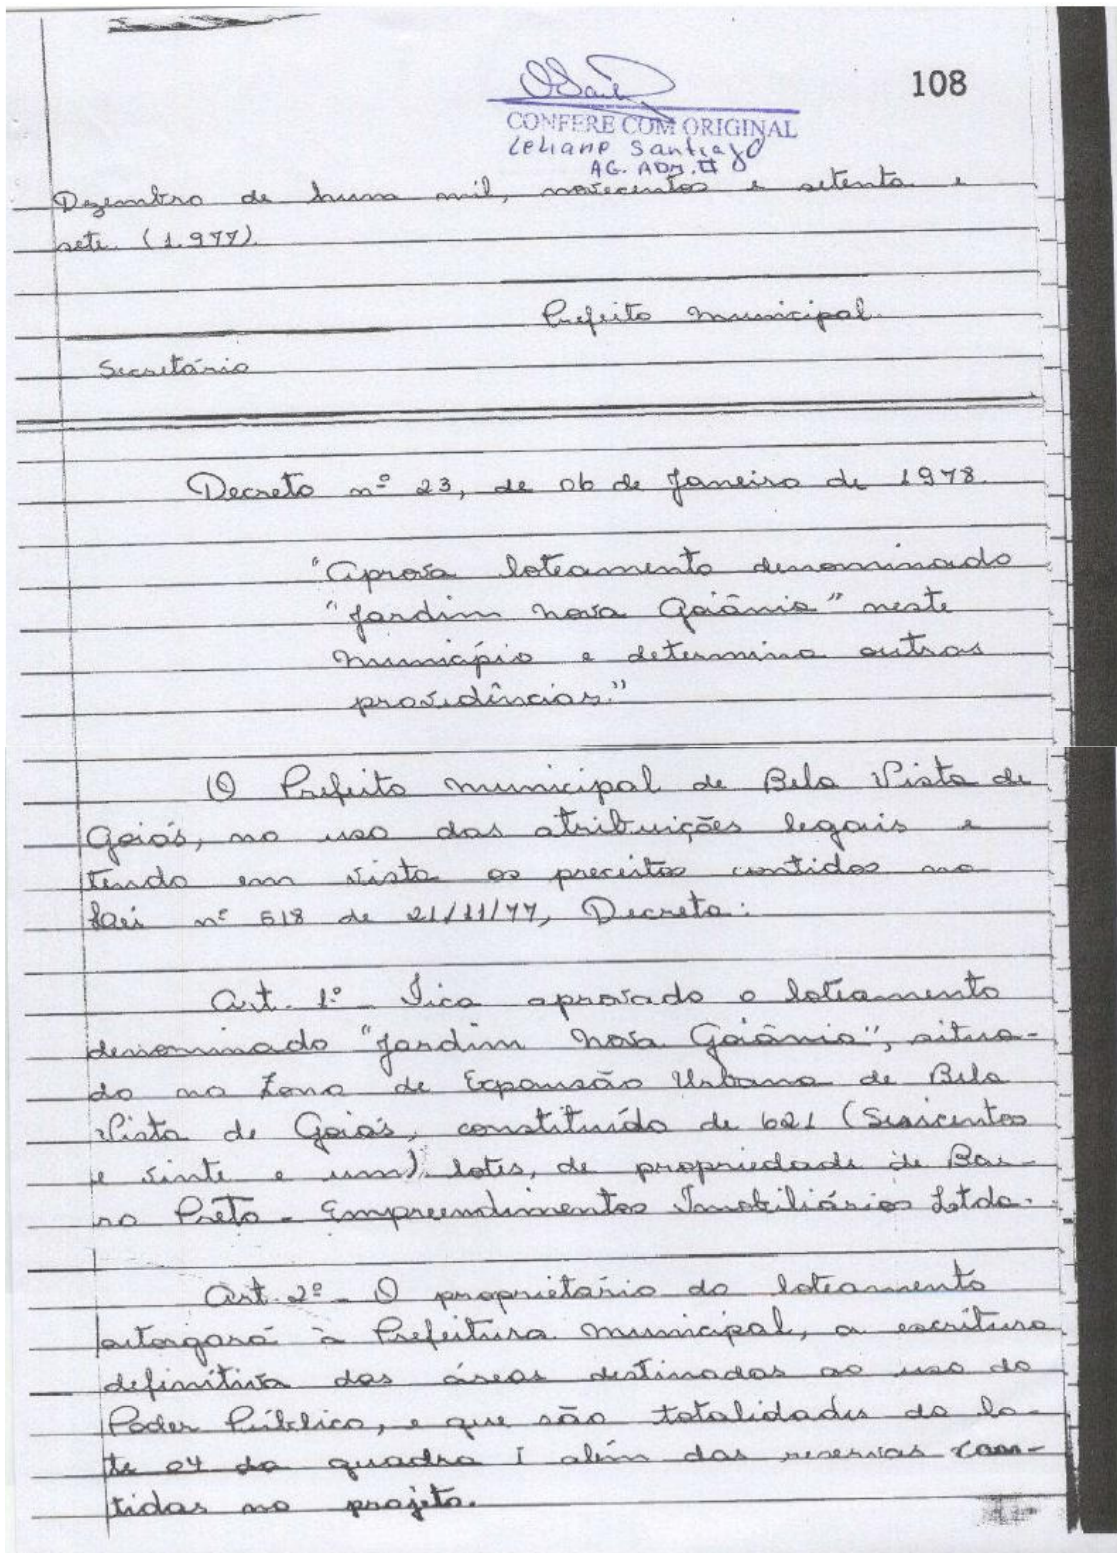 108
CONFERE COM ORIGINAL
Leliane Santiago
AG. ADM. II
Dezembro de hum mil, novecentos e setenta e
sete. (1.977).
Prefeito Municipal.
Secretário
Decreto nº 23, de 06 de Janeiro de 1978.
"Aprova loteamento denominado
"Jardim Nova Goiânia" neste
Município e determina outras
providências."
O Prefeito Municipal de Bela Vista de
Goiás, no uso das atribuições legais e
tendo em vista os preceitos contidos na
Lei nº 518 de 21/11/77, Decreta:
Art. 1º - Fica aprovado o loteamento
denominado "Jardim Nova Goiânia", situa-
do na Zona de Expansão Urbana de Bela
Vista de Goiás, constituído de 621 (Seiscentos
e vinte e um), lotes, de propriedade de Bar-
ro Preto - Empreendimentos Imobiliários Ltda.
Art. 2º - O proprietário do loteamento
outorgará à Prefeitura Municipal, a escritura
definitiva das áreas destinadas ao uso do
Poder Público, e que são totalidades do lo-
te 04 da quadra I além das reservas con-
tidas no projeto.